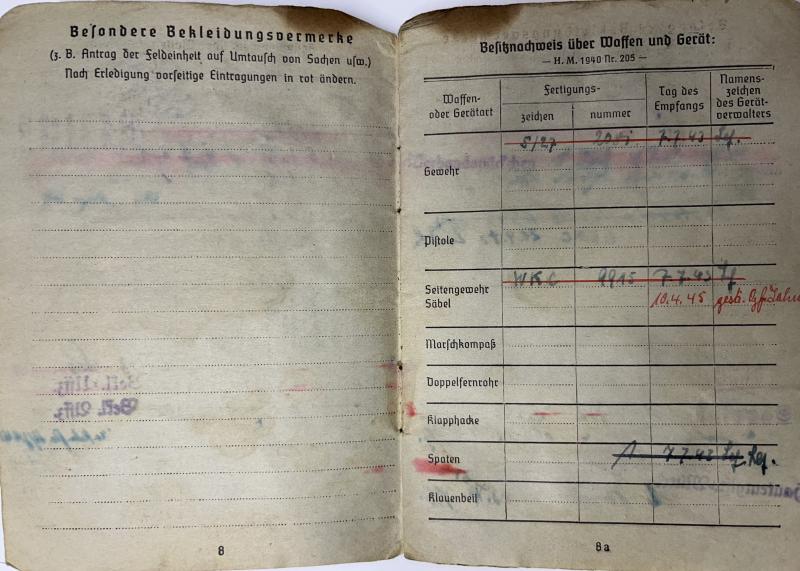 Besondere Bekleidungsvermerke
(z. B. Antrag der Feldeinheit auf Umtausch von Sachen usw.)
Nach Erledigung vorseitige Eintragungen in rot ändern.
8
Besitznachweis über Waffen und Gerät:
— H. M. 1940 Nr. 205 —
Waffen- oder Geräteart
Fertigungs-
zeichen
nummer
Tag des Empfangs
Namens- zeichen des Gerät- verwalters
Gewehr
S/27 7.7.43
Pistole
Seitengewehr WKC 9915 7.7.43
Säbel 10.4.45 gestr.
Marschkompaß
Doppelfernrohr
Klapphacke
Spaten 1 7.7.43
Klauenbeil
8a
Befl. Uffz.
Befl. Uffz.